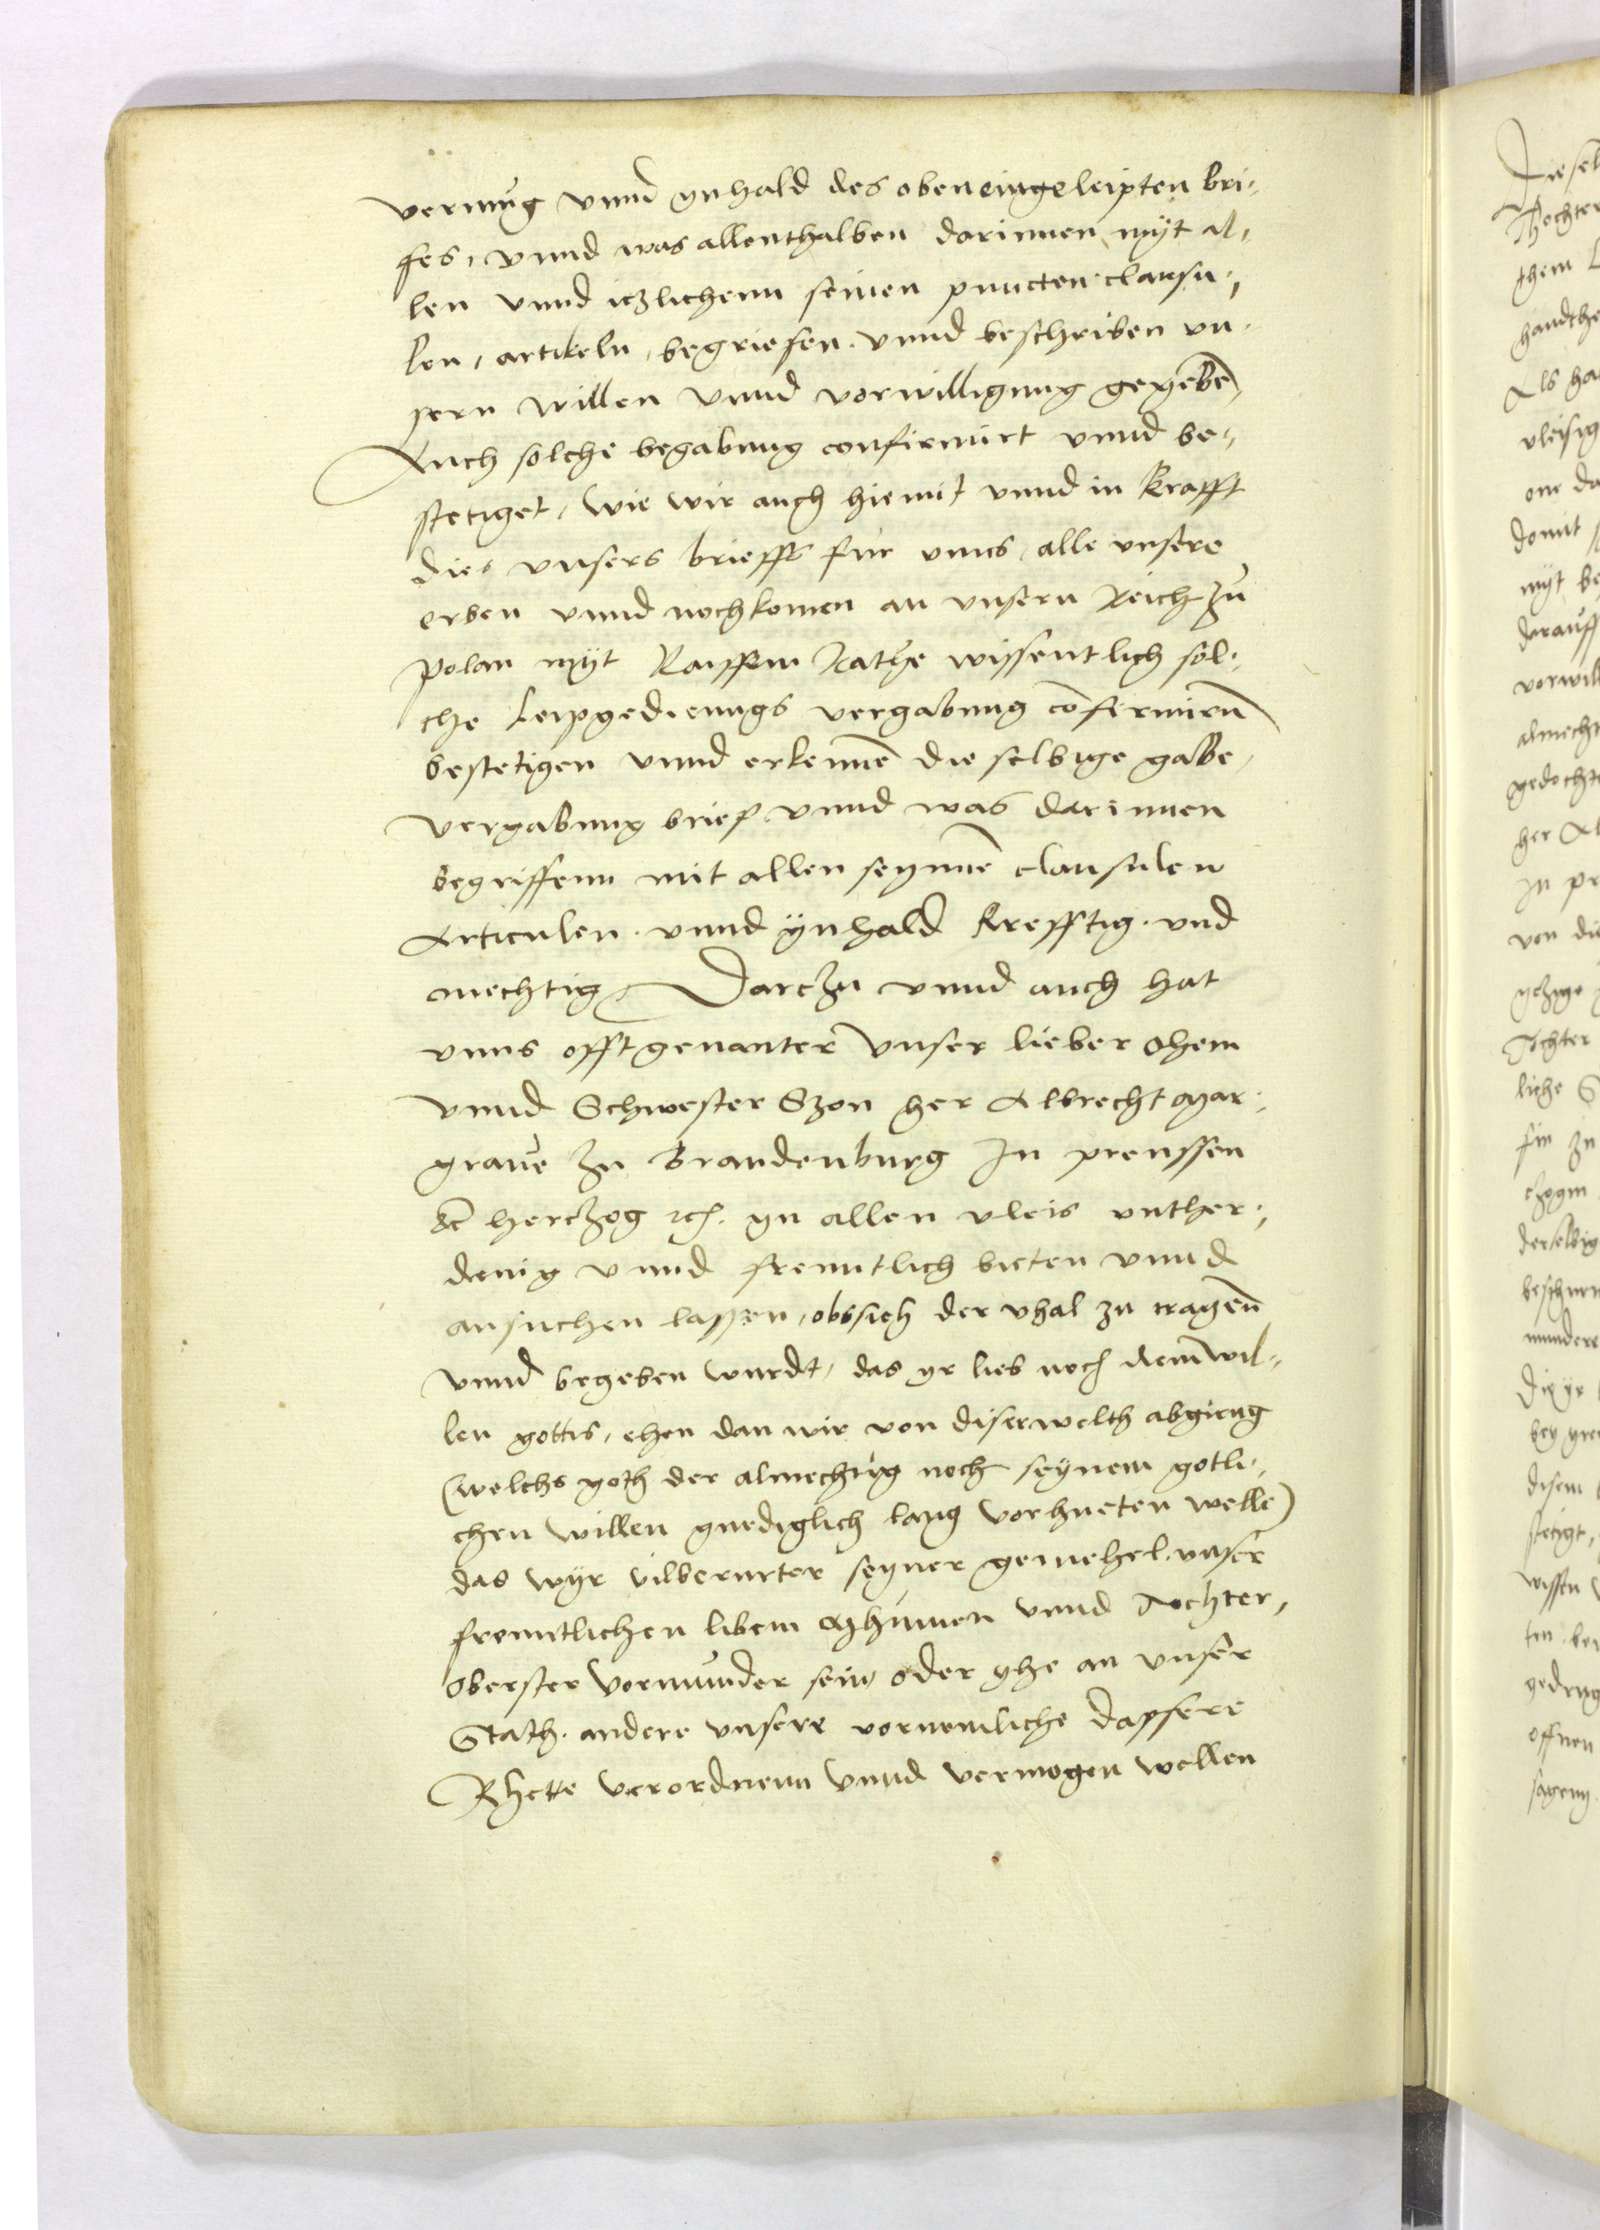 vermug vnnd ynhald des oben eingeleipten bri-
fes, vnnd was allenthalben dorinnen myt al-
len vnnd iczlichenn seinen puncten clausu-
len, artikeln, begriefen vnnd beschriben vn-
sern willen vnnd vorwilligung gegebenn
Auch solche begabung confirmirt vnnd be-
stetiget, wie wir auch hiemit vnnd in krafft
dies vnsers brieffs fur vnns, alle vnsere
erben vnnd nochkomen an vnsern Reich zu
Polan myt Raiffem Rathe wissentlich sol-
che Leipgedienngs vergabung cofirmirenn
bestetigen vnnd erkennen die selbige gabe,
vergabung brief vnnd was darinnen
begriffenn mit allen seynne clausulen
Articulen vnnd ynhald krefftig vnd
mechtig Darczu vnnd auch hat
vnns offtgenanter vnser lieber ohem
vnnd Schwester Szon her Albrecht Mar-
graue zu Brandenburg In preussen
hertzog etc. yn allen vleis vnther-
denig vnnd freuntlich bieten vnnd
ansuchen lassen, ob sich der vhal zu tragenn
vnnd begeben wurdt, das yr lieb noch dem wil-
len gottis, ehen dan wir von diser welth abgieng
(welchs goth der almechtig noch seynem gotli-
chen willen gnediglich lang vorhueten welle)
das wyr vilberurter seyner gemehel vnser
freuntlichen libem Mhumen vnnd Tochter,
Oberster vormunder sein, oder yhe an vnser
Stath andere vnsere vornemliche dapfere
Rhette verordnenn vnnd vermogen wellen